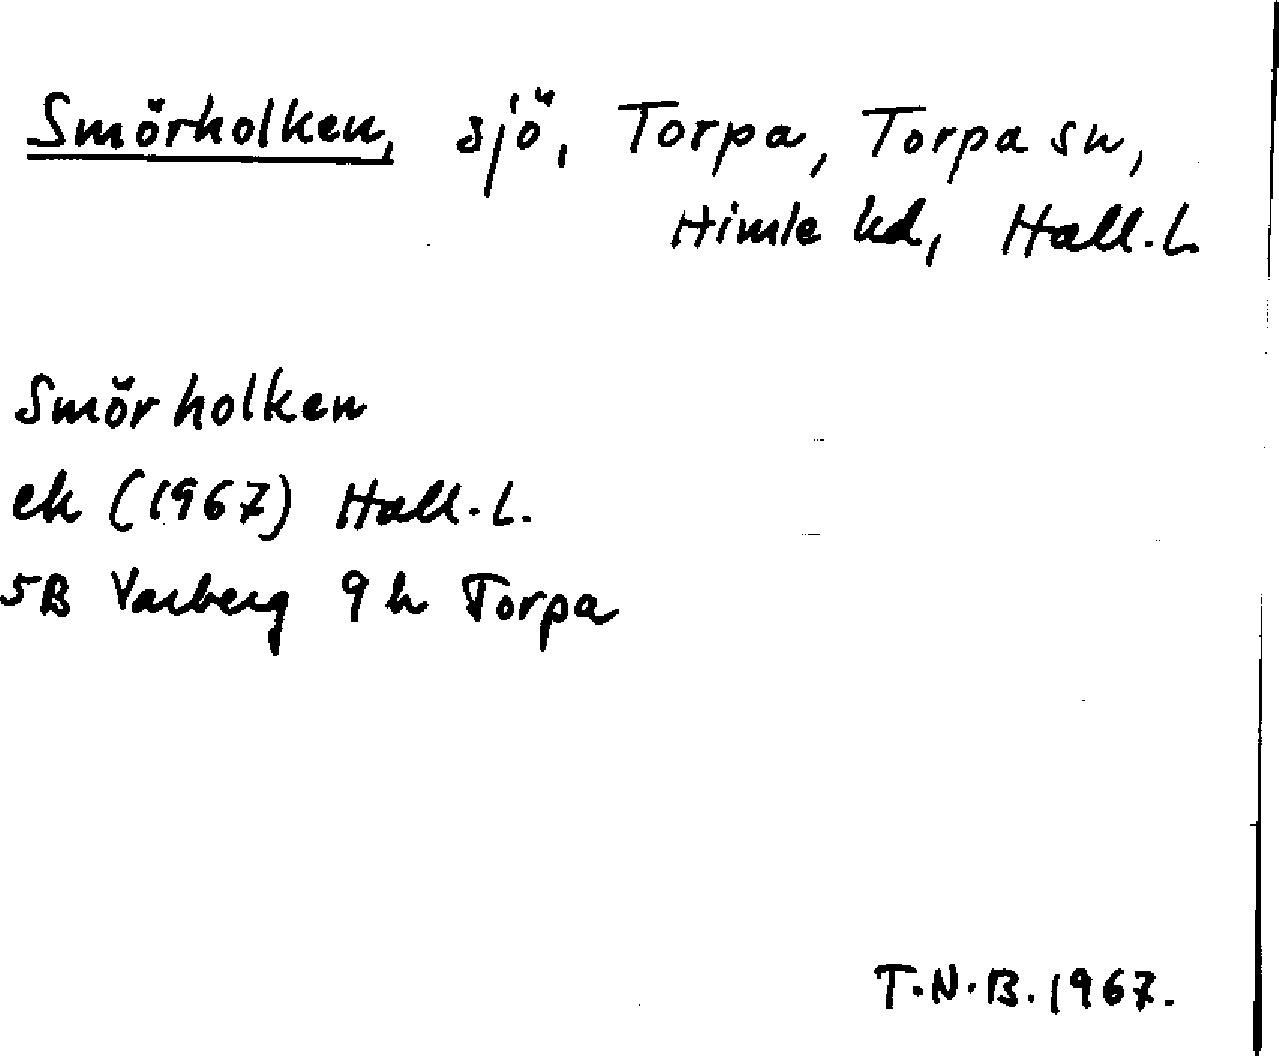 Smörholken, sjö, Torpa, Torpa sn,
Himle hd, Hall. L.
Smörholken
ek (1967) Hall. L.
5B Varberg 9 h Torpa
T.N.B. 1967.